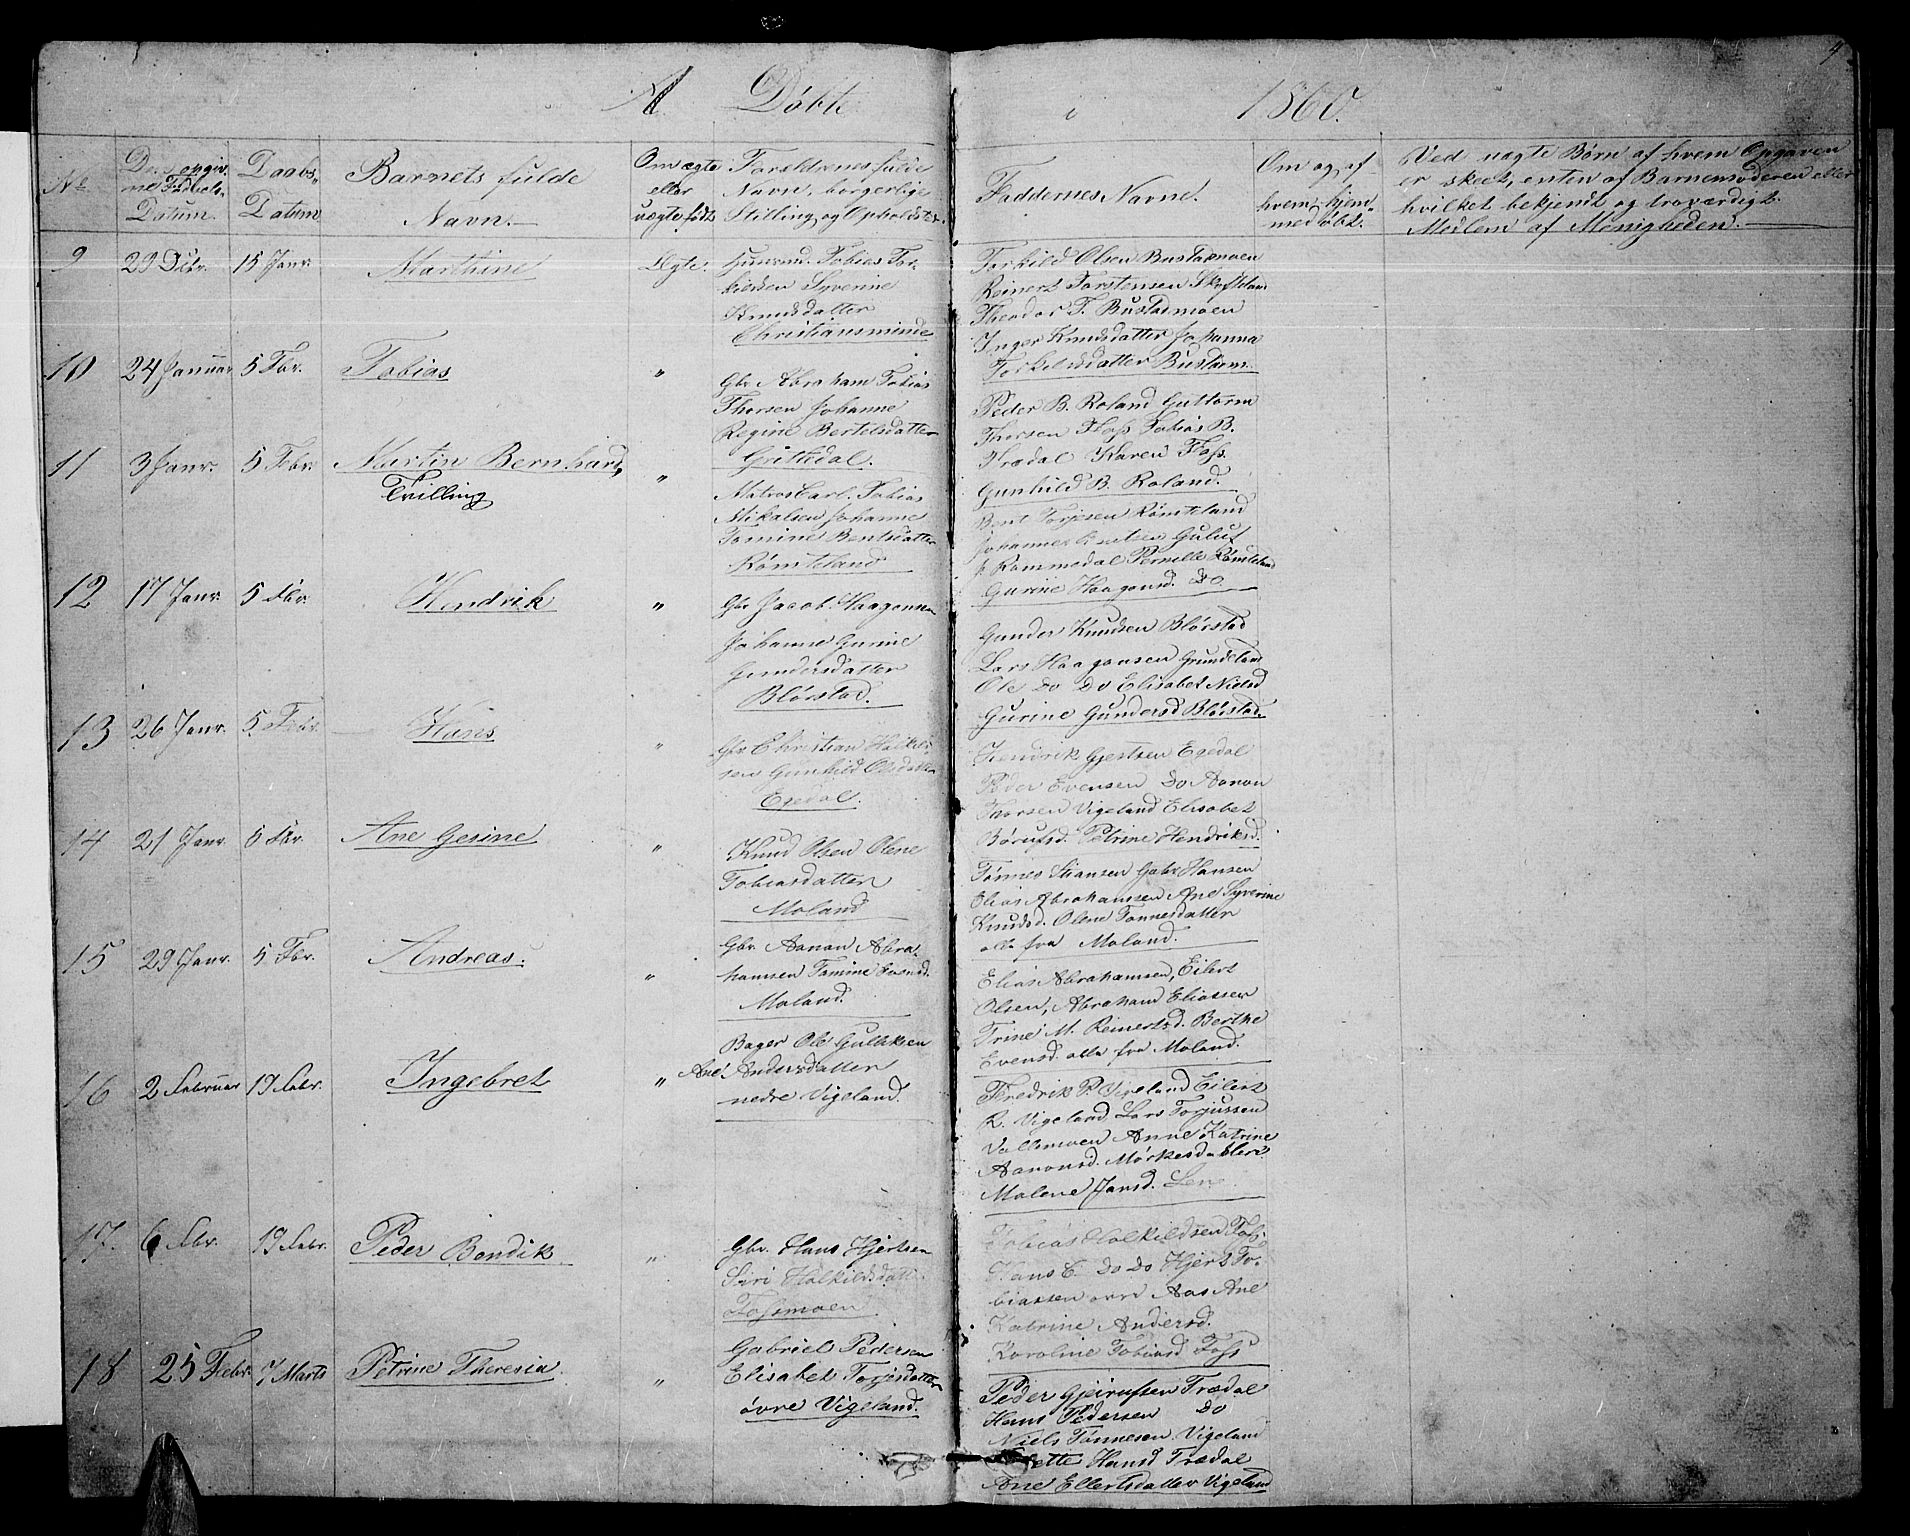 4
A. Døbte i 1860.
No
Den opgivne Fødsels-Datum.
Daabs-Datum
Barnets fulde Navn.
Om ægte eller uægte født
Forældrenes fulde Navn, borgerlige Stilling og Opholdsted
Faddernes Navne.
Om og af hvem hjemmedøbt.
Ved uægte Børn af hvem Opgaven
er skeet, enten af Barnemoderen eller
hvilket bekjendt og troværdigt
Medlem af Menigheden.
9 29 Dcbr. 15 Janr. Marthine Ægte.
Tobias Tor-
kildsen Syverine
Knudsdatter
Christiansminde
Torkild Olsen Bustadmoen
Reinert Torstensen
Theodor T. Bustadmoen
Inger Knudsdatter Johanna
Torkelsdatter Bustadm.
10 24 Januar 5 Fbr. Tobias "
Gbr. Abraham Tobias
Thorsen Johanne
Regine Bertelsdatter
Peder B. Roland Guttorm
Thorsen Foss Tobias B.
Trædal Karen Foss.
Gunhild B. Roland.
11 3 Janr. 5 Fbr. Martin Bernhard, "
Tvilling
Matros Carl Tobias
Mikalsen Johanne
Tomine Bentsdatter
Rømteland
Bent Torjesen Rømteland
Johannes Bentsen Guluf
J. Rommedal Pernille Rømteland
Gurine Haagensd. Do.
12 17 Janr. 5 Fbr. Hendrik "
Gbr Jacob Haagensen
Johanne Gurine
Gundersdatter
Blørstad.
Gunder Knudsen Blørstad
Lars Haagensen Grundeland
Ole Do Do Elisabet Nielsd
Gurine Gundersd Blørstad.
13 26 Janr. 5 Febr. Hans "
Gbr Christian Halkild-
sen Gunhild Olsdatter
Egedal.
Hendrik Gjertsen Egedal
Peder Evensen Do Aanon
Thorsen Vigeland Elisabet
Børufsd. Petrine Hendriksd.
14 21 Janr. 5 Fbr. Ane Gesine "
Knud Olsen Olene
Tobiasdatter
Moland
Tønnes Stiansen Gabr Hansen
Elias Abrahamsen Ane Syverine
Knudsd. Olene Tønnesdatter
alle fra Moland.
15 29 Janr. 5 Fbr. Andreas. "
Gbr. Aanon Abra-
hamsen Tomine
Moland.
Elias Abrahamsen, Eilert
Olsen, Abraham Eliassen
Trine M. Reinertsd. Berthe
Evensd. alle fra Moland.
16 2 Februar 19 Febr. Ingebret "
Bager Ole Gulliksen
Ane Andersdatter
nedre Vigeland.
Fredrik P. Vigeland Eilert
R. Vigeland Lars Torjussen
Vallemoen Anne Katrine
Aanonsd. Mørkesdallen
Malene Jansd. Lene
17. 6 Fbr. 19 Febr. Peder Bendik. "
Gbr. Hans Hjertsen
Siri Halkildsdatt.
Fossmoen.
Tobias Halkildsen Foss.
Hans C. Do Do Hjert To-
biassen øvre Aas Ane
Katrine Andersd.
Karoline Tobiasd Foss
18 25 Febr. 7 Marts Petrine Theresia. "
Gabriel Pedersen
Elisabet Torjesdatter
øvre Vigeland.
Peder Gjerufsen Trædal
Hans Pedersen Do
Niels Tønnesen Vigeland
Hansd Trædal
Tone Ellertsdatter Vigeland